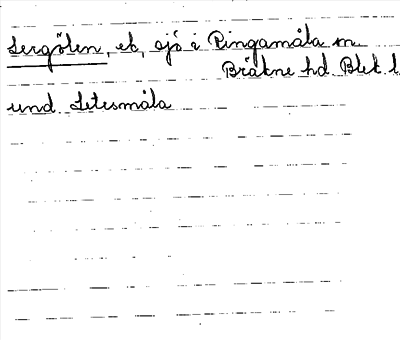 Sergölen, et, sjö i Ringamåla sn.
Bräkne hd. Blek. l
und. Setesmåla